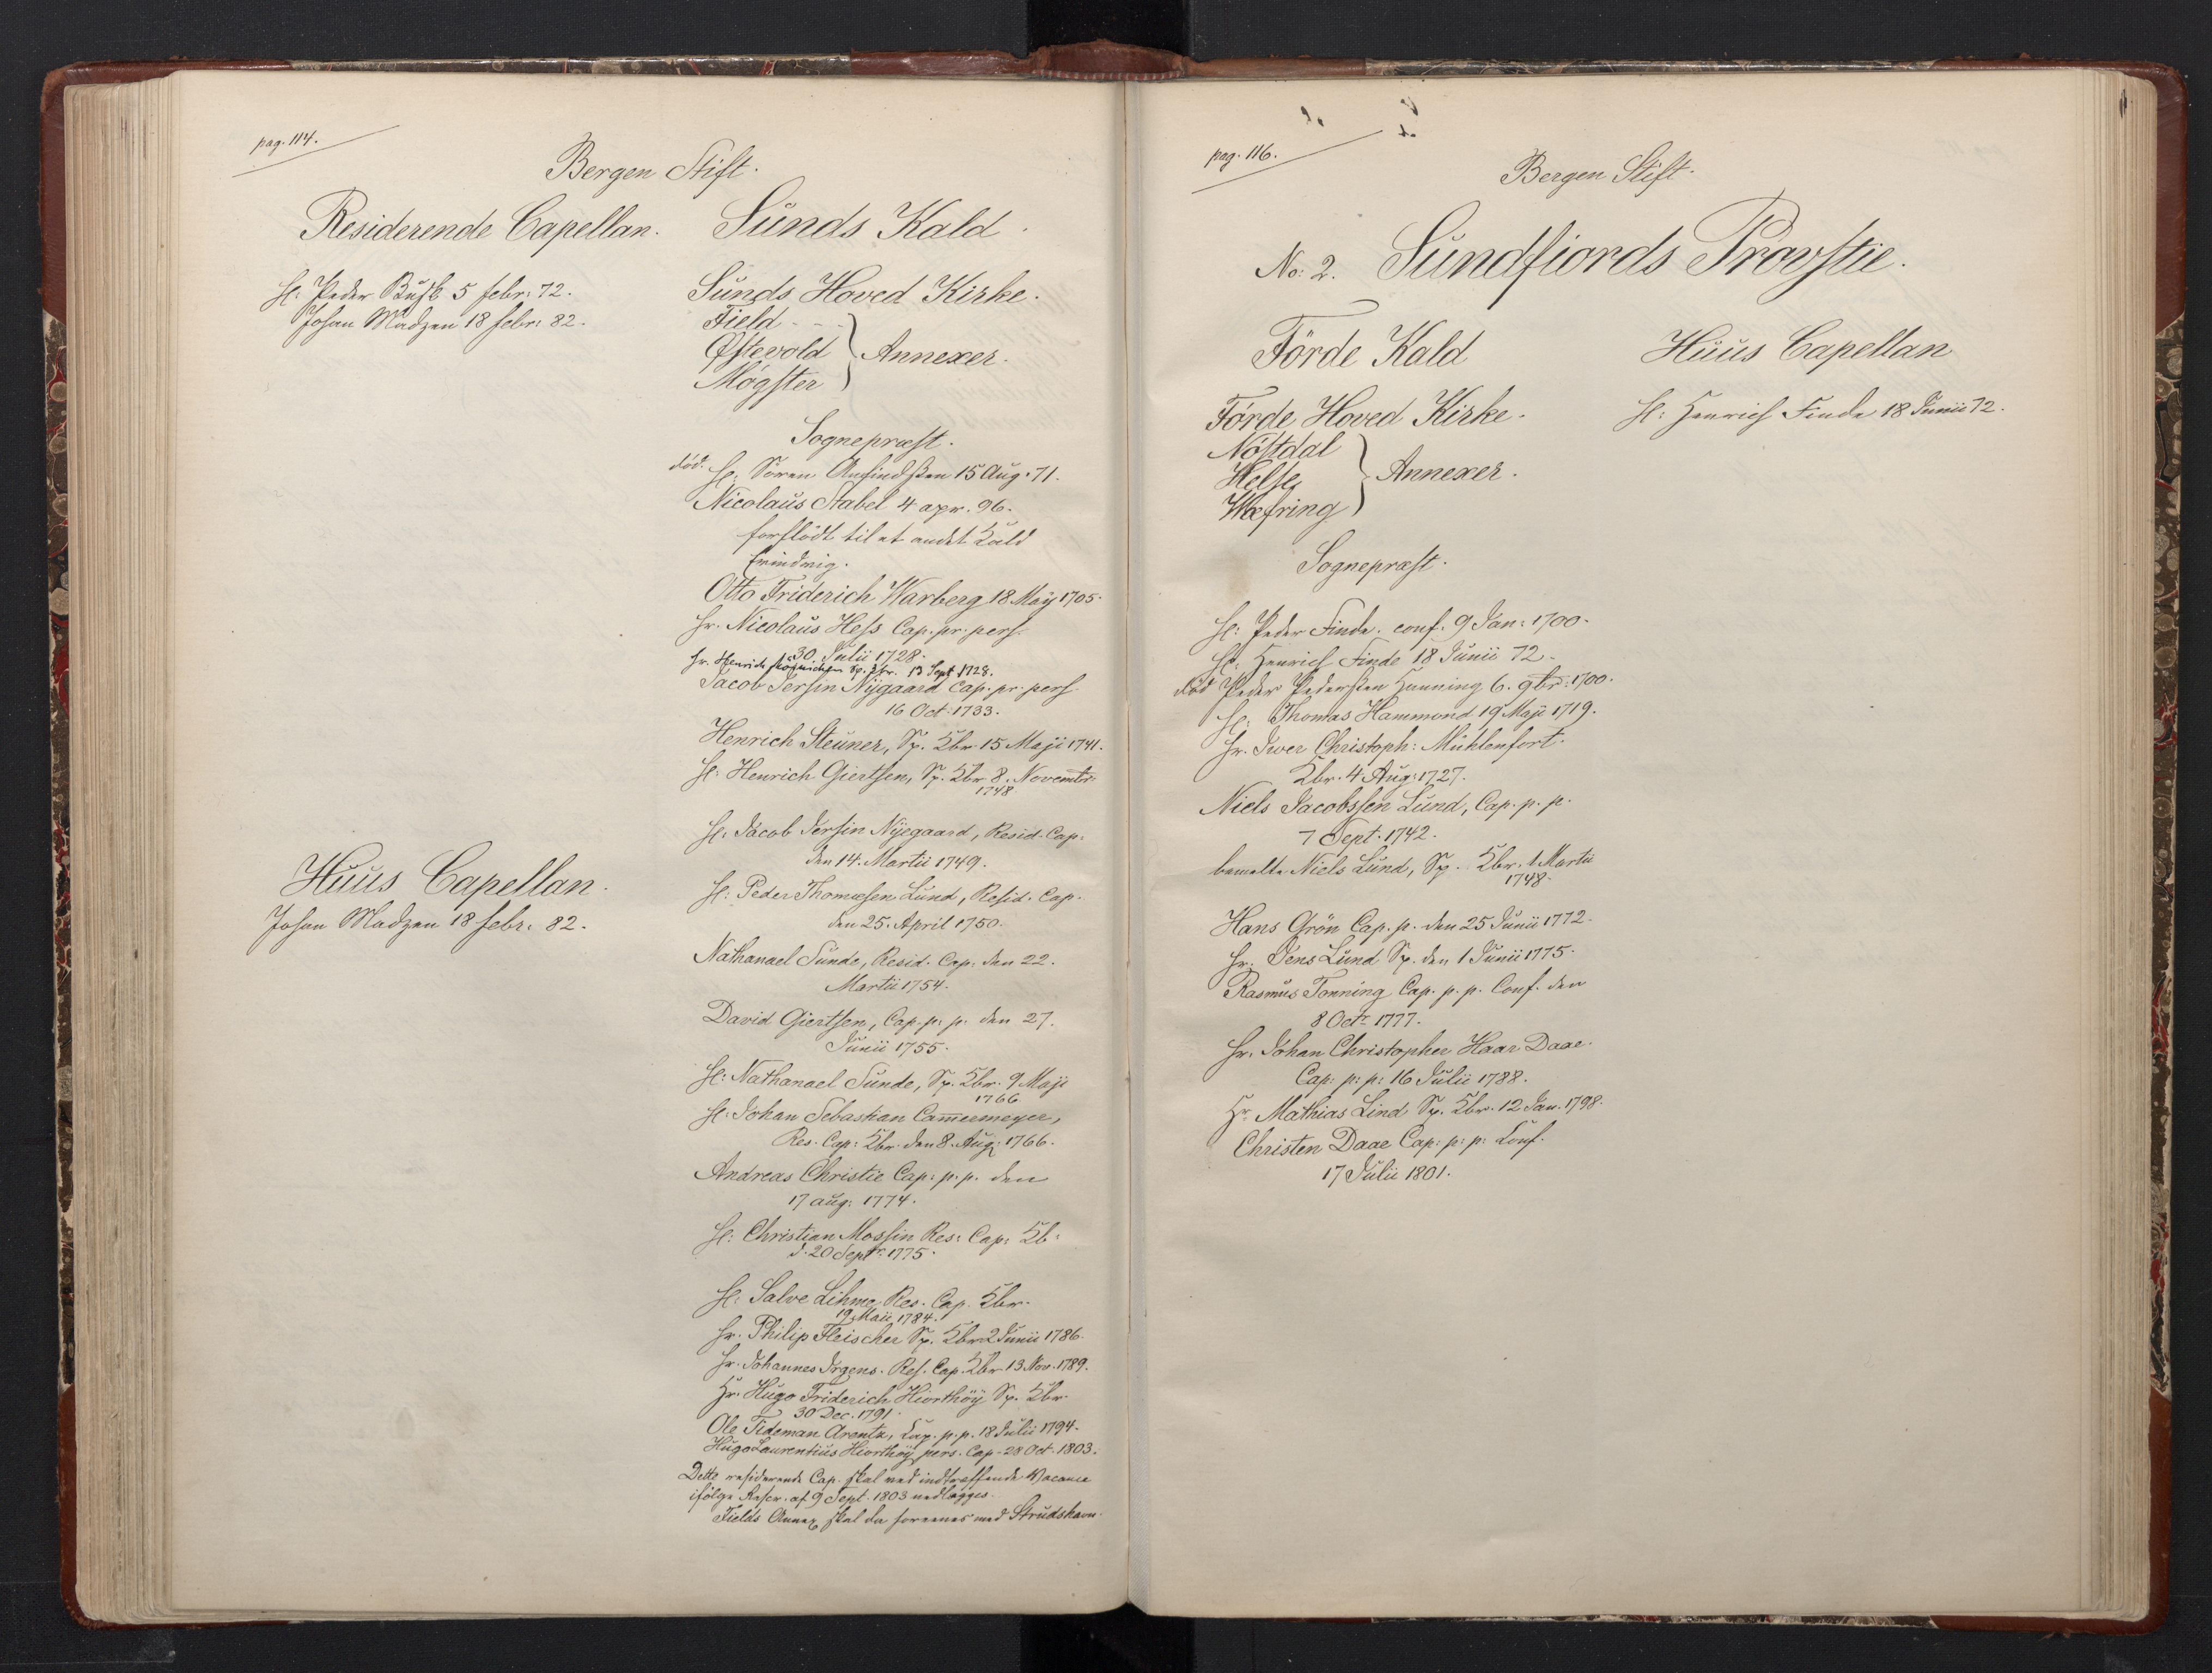 pag. 114.
Bergen Stift.
Residerende Capellan.
Hr: Peder Busk 5 febr: 72.
Johan Madzen 18 febr: 82.
Huus Capellan.
Johan Madzen 18 febr: 82.
Sunds Kald.
Sunds Hoved Kirke.
Field - - -
Østevold } Annexer.
Møgster
Sognepræst.
død. Hr: Sören 15 Aug. 71.
Nicolaus Stabel 4 apr. 96.
forflödt til et andet Kald
Evindvig.
Otto Friderich Warberg 18 May 1705.
Hr. Nicolaus Hess Cap. pr. pers.
30. Julii 1728.
Hr. Henrich Sp. 13 Sept 1728.
Jacob Jersin Nÿgaard Cap. pr. pers.
16 Oct. 1733.
Henrich Steuner, Sp. Kbr. 15 Maji 1741.
Hr: Henrich Giertsen, Sp. Kbr. 8. Novembr.
1748
Hr: Jacob Jersin Nÿegaard, Resid. Cap:
den 14. Martii 1749.
Hr: Peder Thomesen Lund, Resid. Cap.
den 25. April 1750.
Nathanael Sunde, Resid. Cap. den 22.
Martii 1754.
David Giertsen, Cap. p. p. den 27.
Junii 1755.
Hr: Nathanael Sunde, Sp. Kbr. 9 Maji
1766
Hr: Johan Sebastian Cam̅ermeyer,
Res. Cap: Kbr. den 8. Aug: 1766.
Andreas Christie Cap: p. p. den
17 aug: 1774.
Hr: Christian Mossin Res: Cap: Kb:
d. 20 Septr: 1775.
Hr: Salve Lihme Res. Cap. Kbr.
19 Maii 1784.
Hr. Philip Fleischer Sp. Kbr. 2 Junii 1786.
Hr. Johannes Irgens. Res. Cap. Kbr. 13 Nov. 1789.
Hr. Hugo Friderich Hiorthöÿ Sp. Kbr.
30 Dec. 1791.
Ole Tideman Arentz, Cap. p. p. 18 Julii 1794.
Hugo Laurentius Hiorthöy pers. Cap. 28 Oct. 1803.
Dette residerende Cap. skal ved indtræffende Vacance
ifölge Rescr. af 9 Sept. 1803 nedlægges.
Fields Annex skal da forenes med Strudshavn.
pag. 116.
Bergen Stift.
No. 2. Sundfiords Provstie.
Förde Kald
Förde Hoved Kirke.
Nöstdal
Holsen } Annexer.
Wefring
Sognepræst.
Hr: Peder Finde. conf. 9 Jan: 1700.
Hr: Henrich Finde 18 Junii 72.
død Peder Pedersken Hunning 6. 9br: 1700.
Hr: Thomas Hammond 19 Maji 1719.
Hr. Iver Christoph: Mühlenfort.
Kbr. 4 Aug: 1727.
Niels Jacobssen Lund, Cap. p. p.
7 Sept. 1742.
bemelte Niels Lund, Sp. Kbr. 1 Martii
1748.
Hans Grön Cap. p. den 25 Junii 1772.
Hr. Jens Lund Sp. den 1 Junii 1775.
Rasmus Tonning Cap. p. p. Conf. den
8 Octr 1777.
Hr. Johan Christopher Haar Daae.
Cap: p: p: 16 Julii 1788.
Hr. Mathias Lind Sp. Kbr. 12 Jan. 1798.
Christen Daae Cap: p: p: Conf.
17 Julii 1801.
Huus Capellan
Hr: Henrich Finde 18 Junii 72.